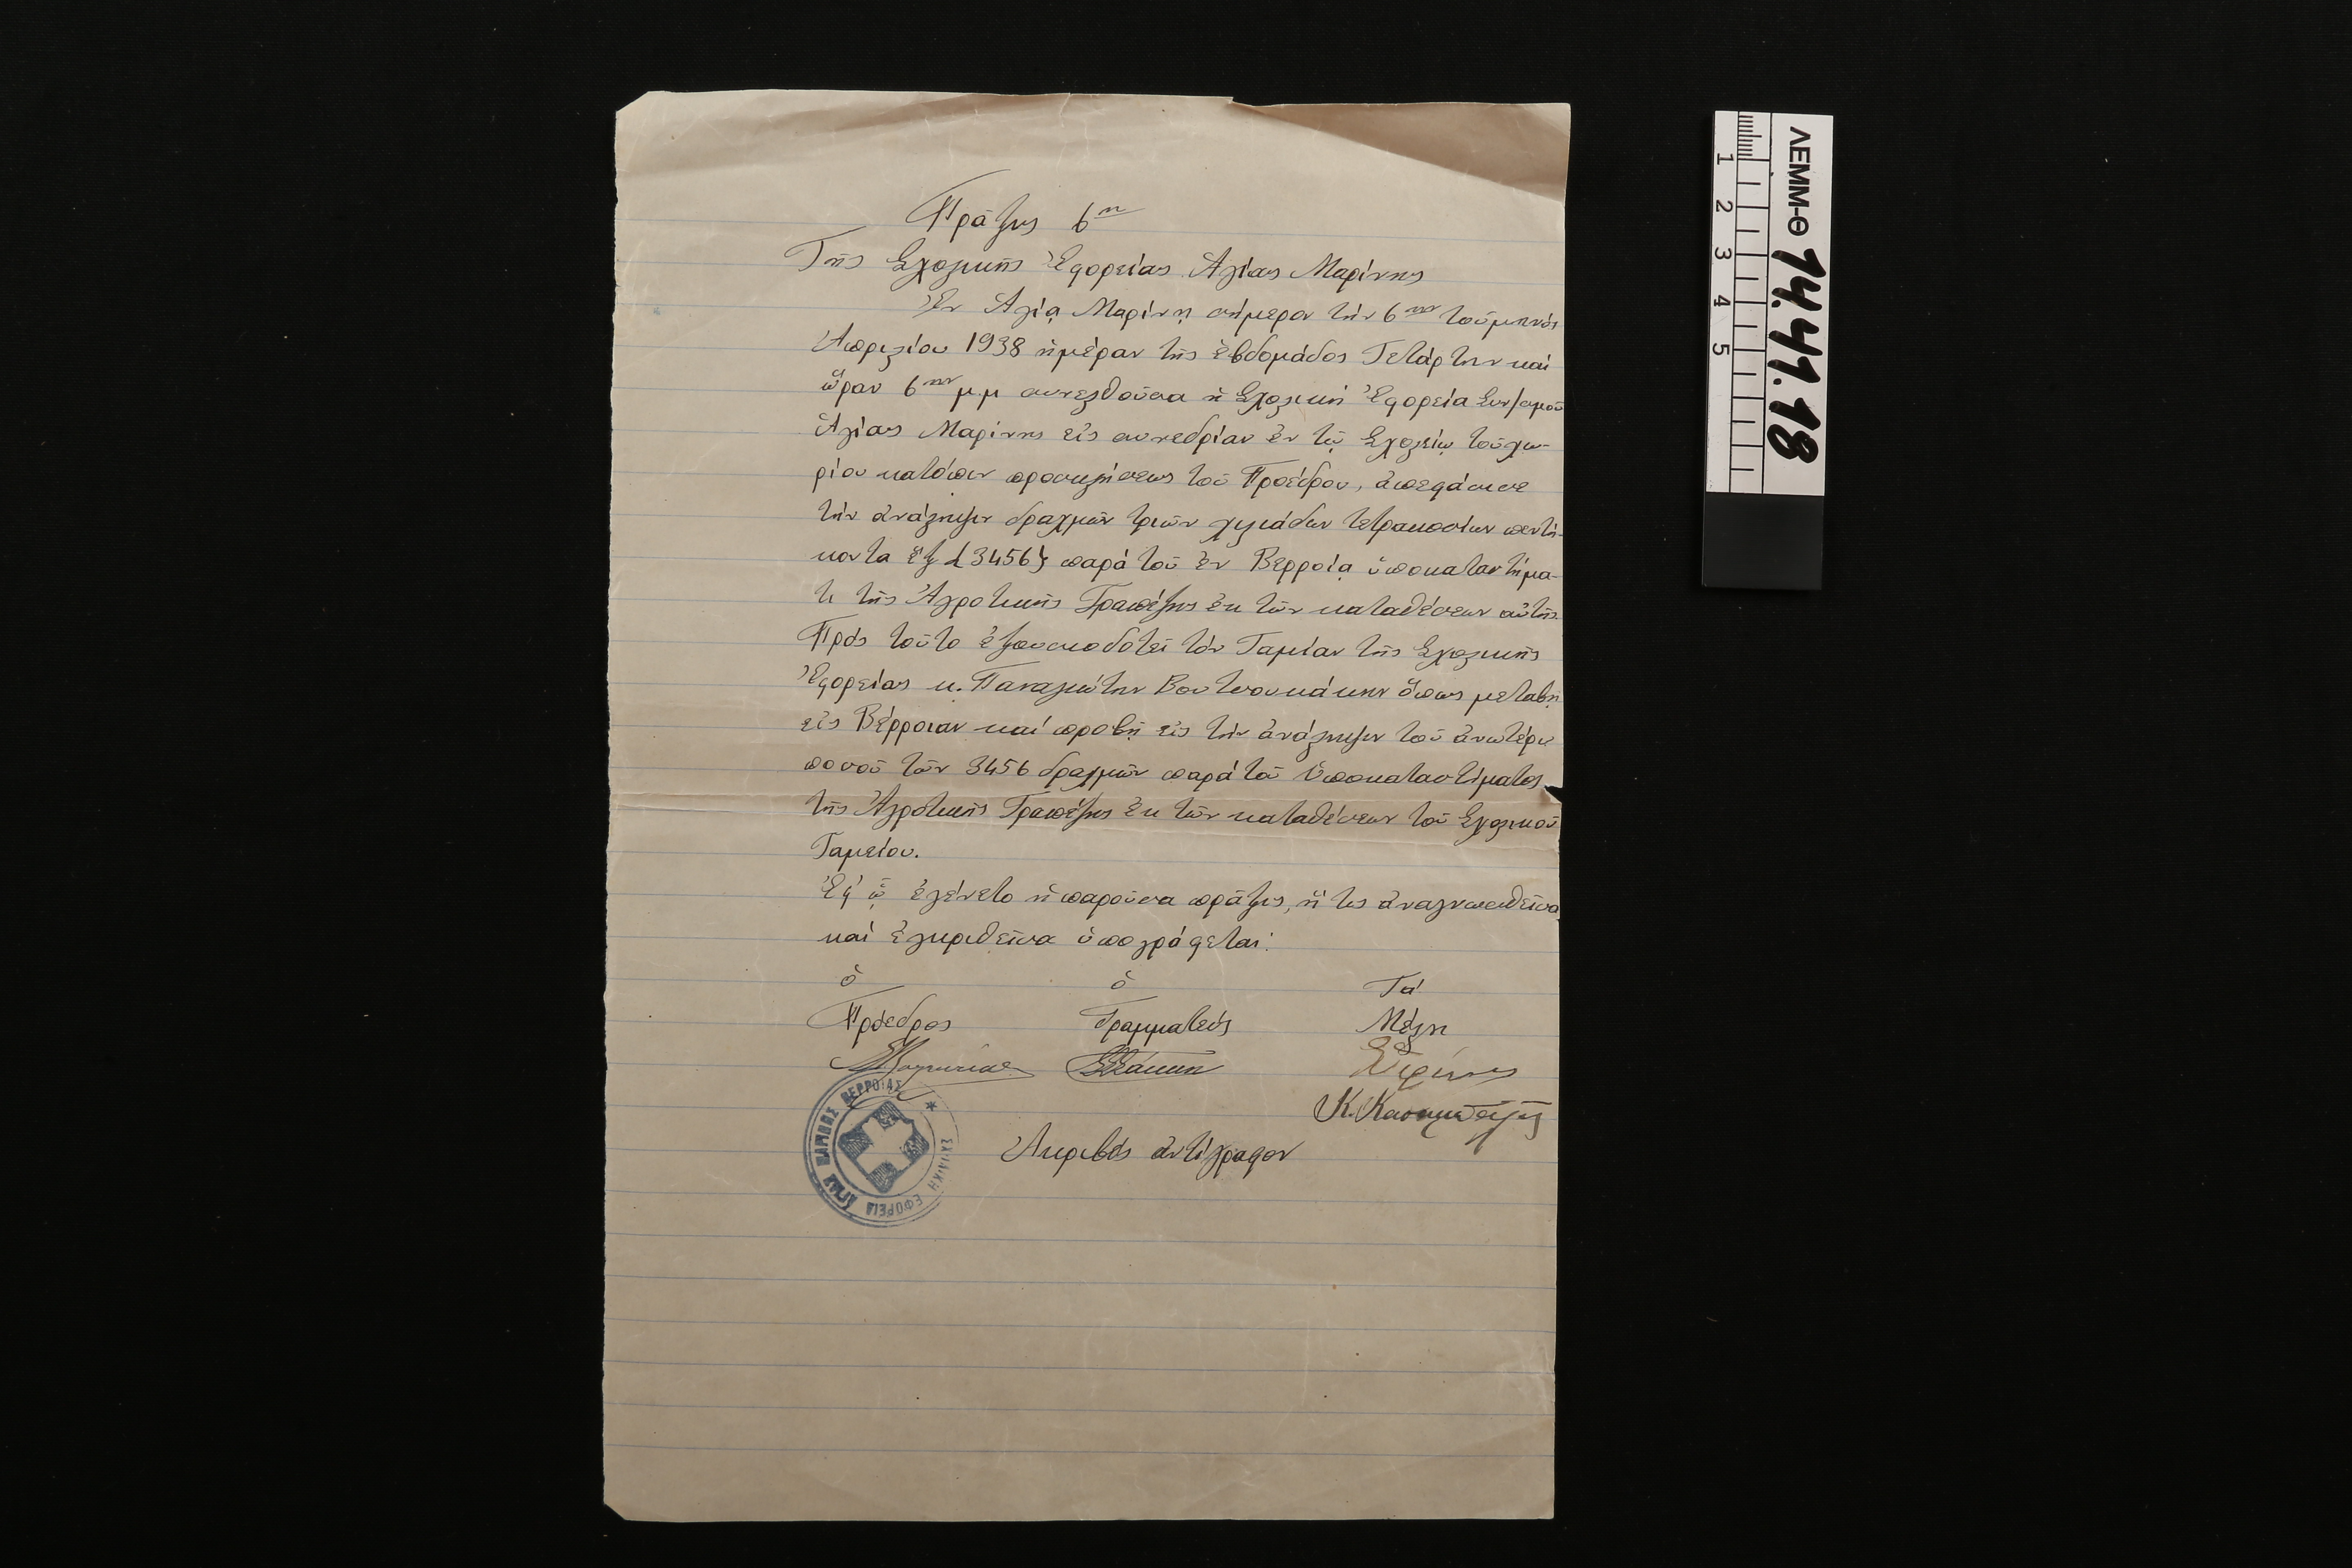 Πρᾶξις 6η
Τῆς Σχολικῆς Ἐφορείας Ἁγίας Μαρίνης
Ἐν Ἁγίᾳ Μαρίνῃ σήμερον τήν 6ην τοῦ μηνός
Ἀπριλίου 1938 ἡμέραν τῆς ἑβδομάδος Τετάρτην καί
ὥραν 6ην μ.μ συνελθοῦσα ἡ Σχολική Ἐφορεία Συν/σμοῦ
Ἁγίας Μαρίνης εἰς συνεδρίαν ἐν τῷ Σχολείῳ τοῦ χω-
ρίου κατόπιν προσκλήσεως τοῦ Προέδρου, ἀπεφάσισε
τήν ἀνάληψιν δραχμῶν τριῶν χιλιάδων τετρακοσίων πεντή-
κοντα ἕξ {3456} παρά τοῦ ἐν Βερροίᾳ ὑποκαταστήμα-
τι τῆς Ἀγροτικῆς Τραπέζης ἐκ τῶν καταθέσεων αὐτῆς.
Πρός τοῦτο ἐξουσιοδοτεῖ τόν Ταμίαν τῆς Σχολικῆς
Ἐφορείας κ. Παναγιώτην Βουτσουκάκην ὅπως μεταβῇ
εἰς Βέρροιαν καί προβῇ εἰς τήν ἀνάληψιν τοῦ ἀνωτέρω
ποσοῦ τῶν 3456 δραχμῶν παρά τοῦ Ὑποκαταστήματος
τῆς Ἀγροτικῆς Τραπέζης ἐκ τῶν καταθέσεων τοῦ Σχολικοῦ
Ταμείου.
Ἐφ' ᾧ ἐγένετο ἡ παροῦσα πρᾶξις, ἥτις ἀναγνωσθεῖσα
καί ἐγκριθεῖσα ὑπογράφεται:
ὁ ὁ Τά
Πρόεδρος Γραμματεύς Μέλη
Κ.
ΣΧΟΛΙΚΗ ΕΦΟΡΕΙΑ ΑΓΙΑΣ ΜΑΡΙΝΗΣ ΒΕΡΡΟΙΑΣ
Ἀκριβές ἀντίγραφον
ΛΕΜΜ-Θ 74.41.18
1 2 3 4 5